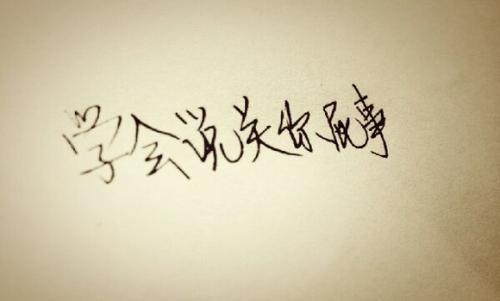 学会说关你屁事